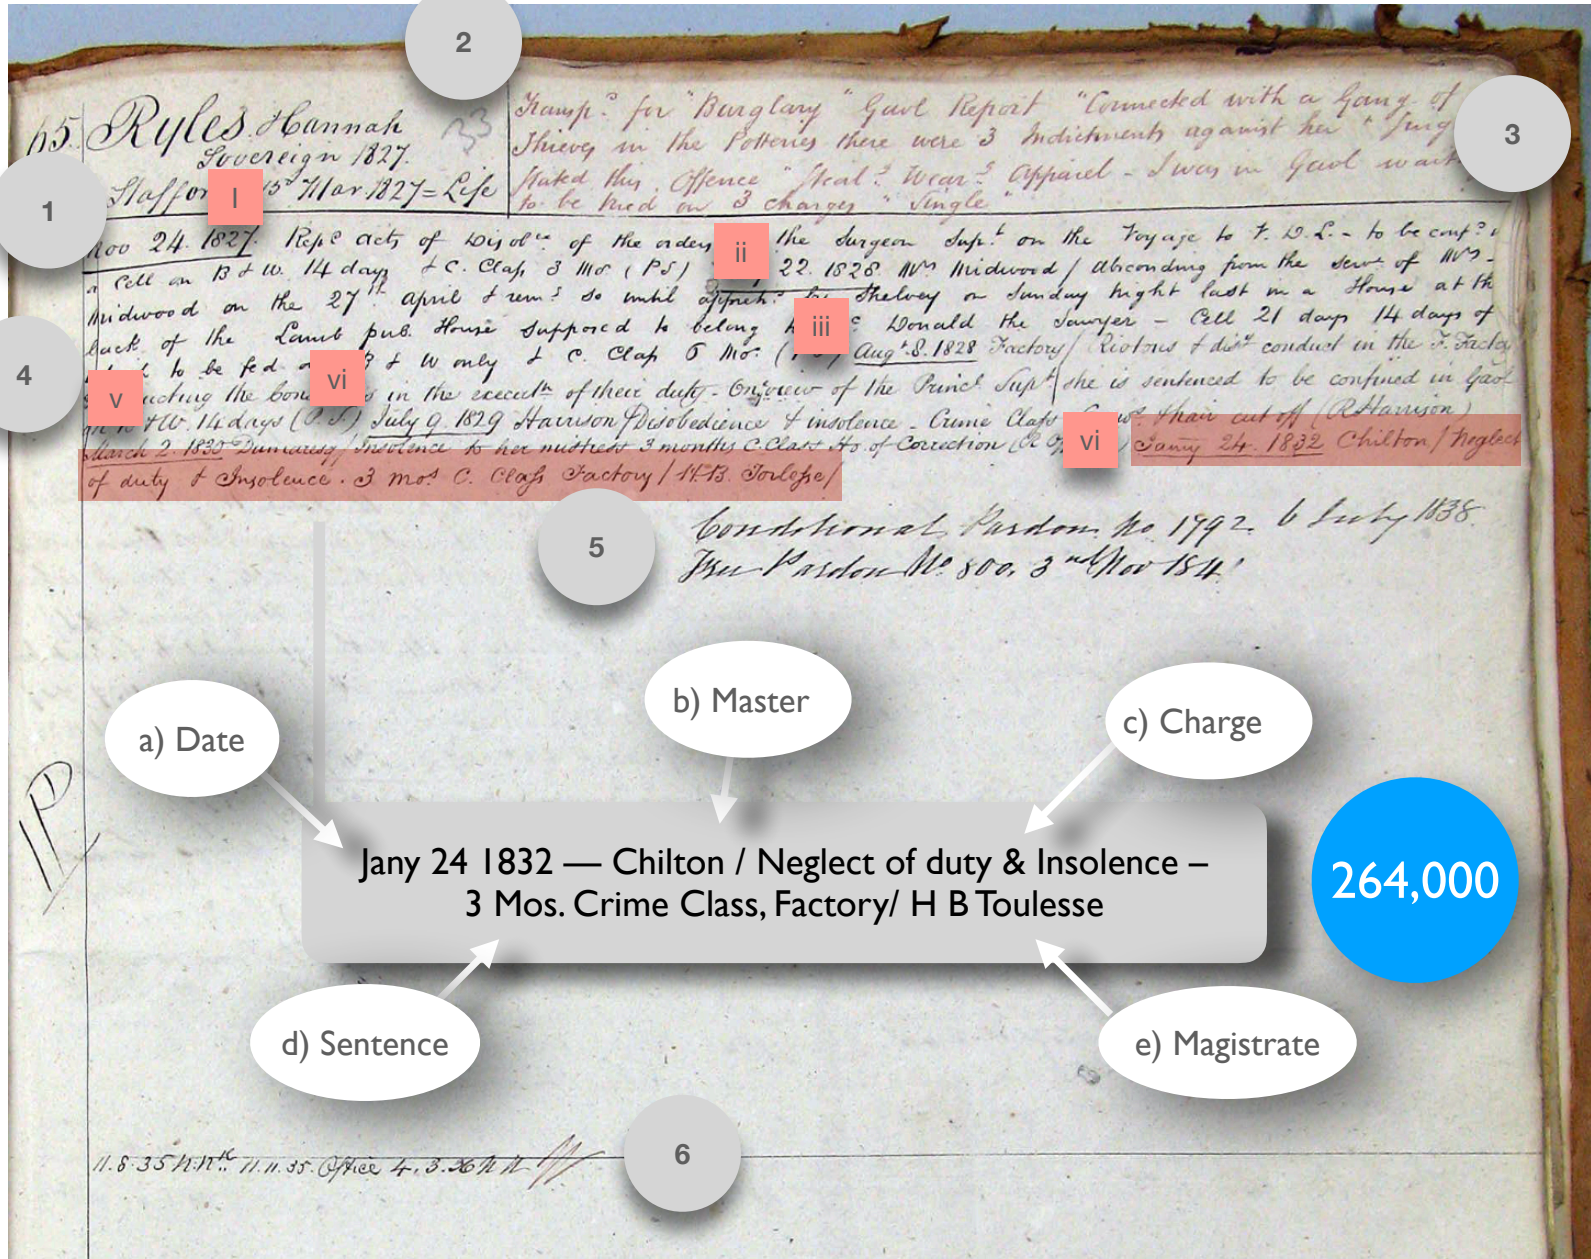 2
65. Ryles Hannah 33
Sovereign 1827.
Mar. 1827 = Life
Transp.d for "Burglary" Gaol Report "Connected with a Gang of
Thieves in the Potteries there were 3 Indictments against her"
Stated this Offence "Steal.g Wear.g Apparel - I was in Gaol
to be tried on 3 charges" Single
3
1
I
Nov 24. 1827. Rep.d acts of of the orders ii the Surgeon Sup.t on the Voyage to V. D. L. - to be
a Cell on B & W. 14 days & C. Class 3 Mo.s (PS) 22. 1828 Midwood / Absconding from the serv.e of
Midwood on the 27th April & so until by Shelvey on Sunday Night last in a House at the
iii
back of the Lamb pub. House supposed to belong Donald the Sawyer - Cell 21 days 14 days of
4
to be fed B & W only & C. Class 6 Mo.s Aug.t 8. 1828 Factory / Riotous & conduct in the F. Factory
vi
v
in the of their duty - On view of the Princ.l Sup.t she is sentenced to be confined in Gaol
on & W. 14 days (P.S.) July 9. 1829 Harrison / Disobedience & insolence - Crime Class hair cut off (R Harrison)
vi
March 2. 1830 Dumaresq / Insolence to her mistress 3 months C. Class Ho. of Correction Jany 24. 1832 Chilton / Neglect
of duty & Insolence. 3 mo.s C. Class Factory /
5
Conditional Pardon No. 1792 6 July 1838
Free Pardon No. 800, 3nd Nov 184
a) Date
b) Master
c) Charge
Jany 24 1832 — Chilton / Neglect of duty & Insolence –
3 Mos. Crime Class, Factory/ H B Toulesse
264,000
d) Sentence
e) Magistrate
6
11.8.35 11.11.35. Office 4.3.36